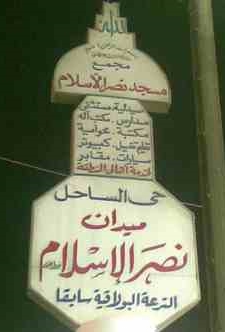 الله
مجمع
مسجد نصر الإسلام
صيدلية مستشفى
مدارس . مكتب آله
مكتبة .
كمبيوتر
سيارات . مقابر
حى الساحل
ميدان
نصر الإسلام
الترعة البولاقية سابقا